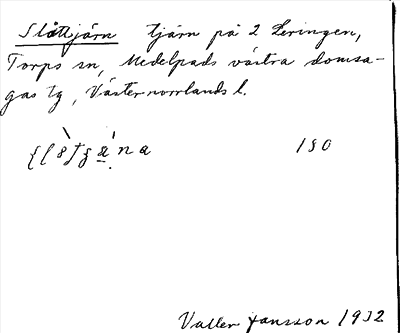 Slåttjärn tjärn på 2 Leringen,
Torps sn, Medelpads västra domsa-
gas tg, Västernorrlands l.
180
Valter Jansson 1932